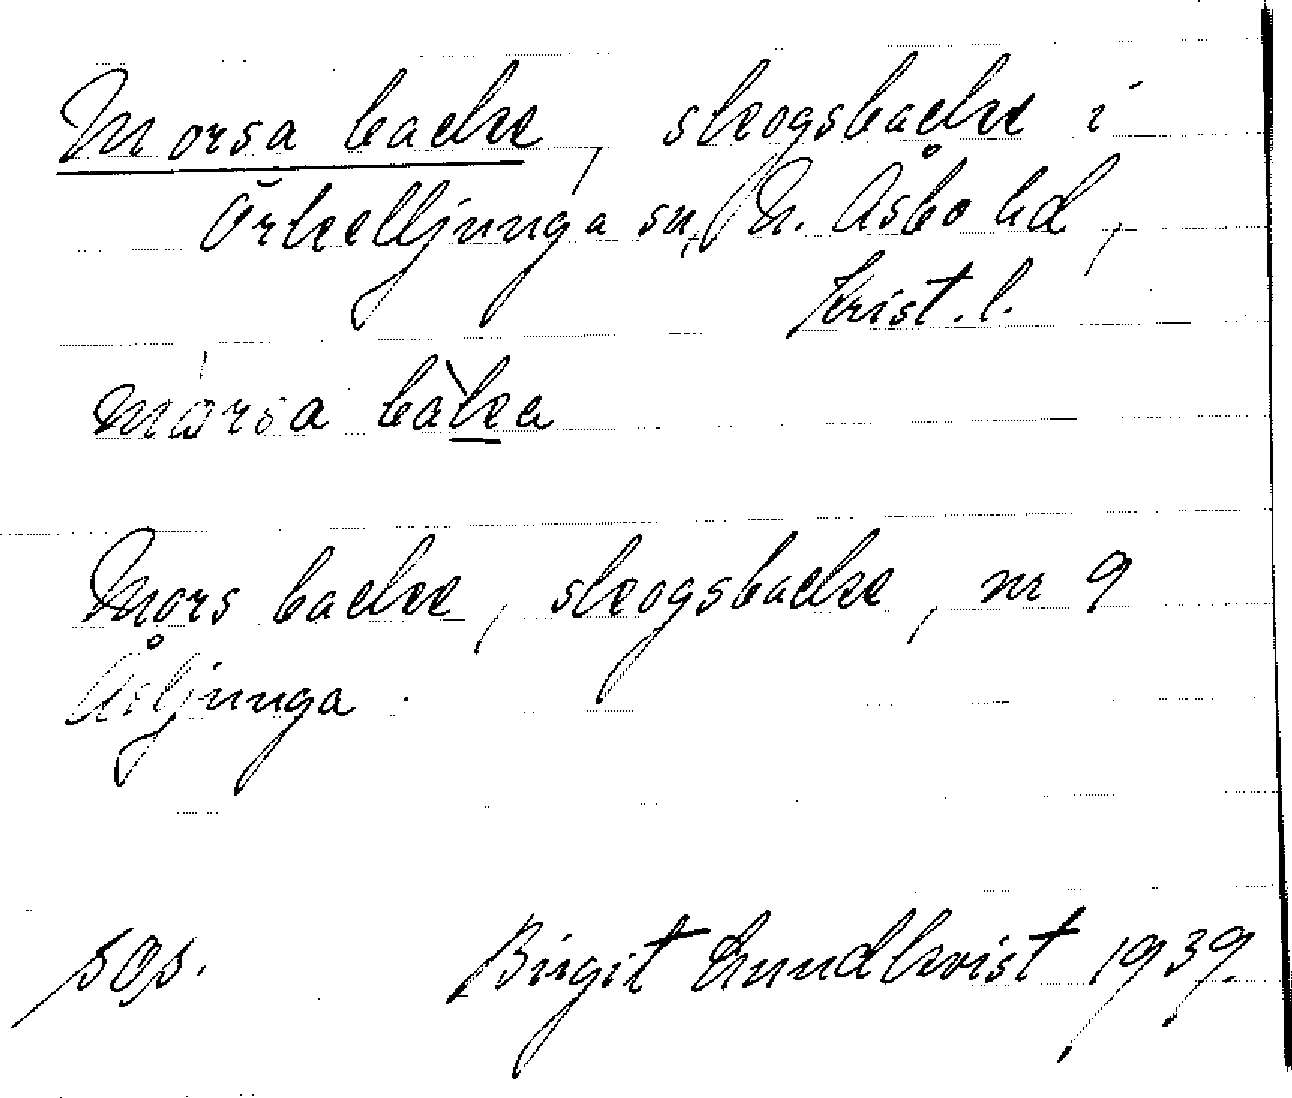 Morsa backe, skogsbacke i
Örkelljunga sn, N. Åsbo hd,
Krist. l.
mårsa bàka
Mors backe, skogsbacke, nr 9
Åsljunga.
Birgit Lundkvist 1939.